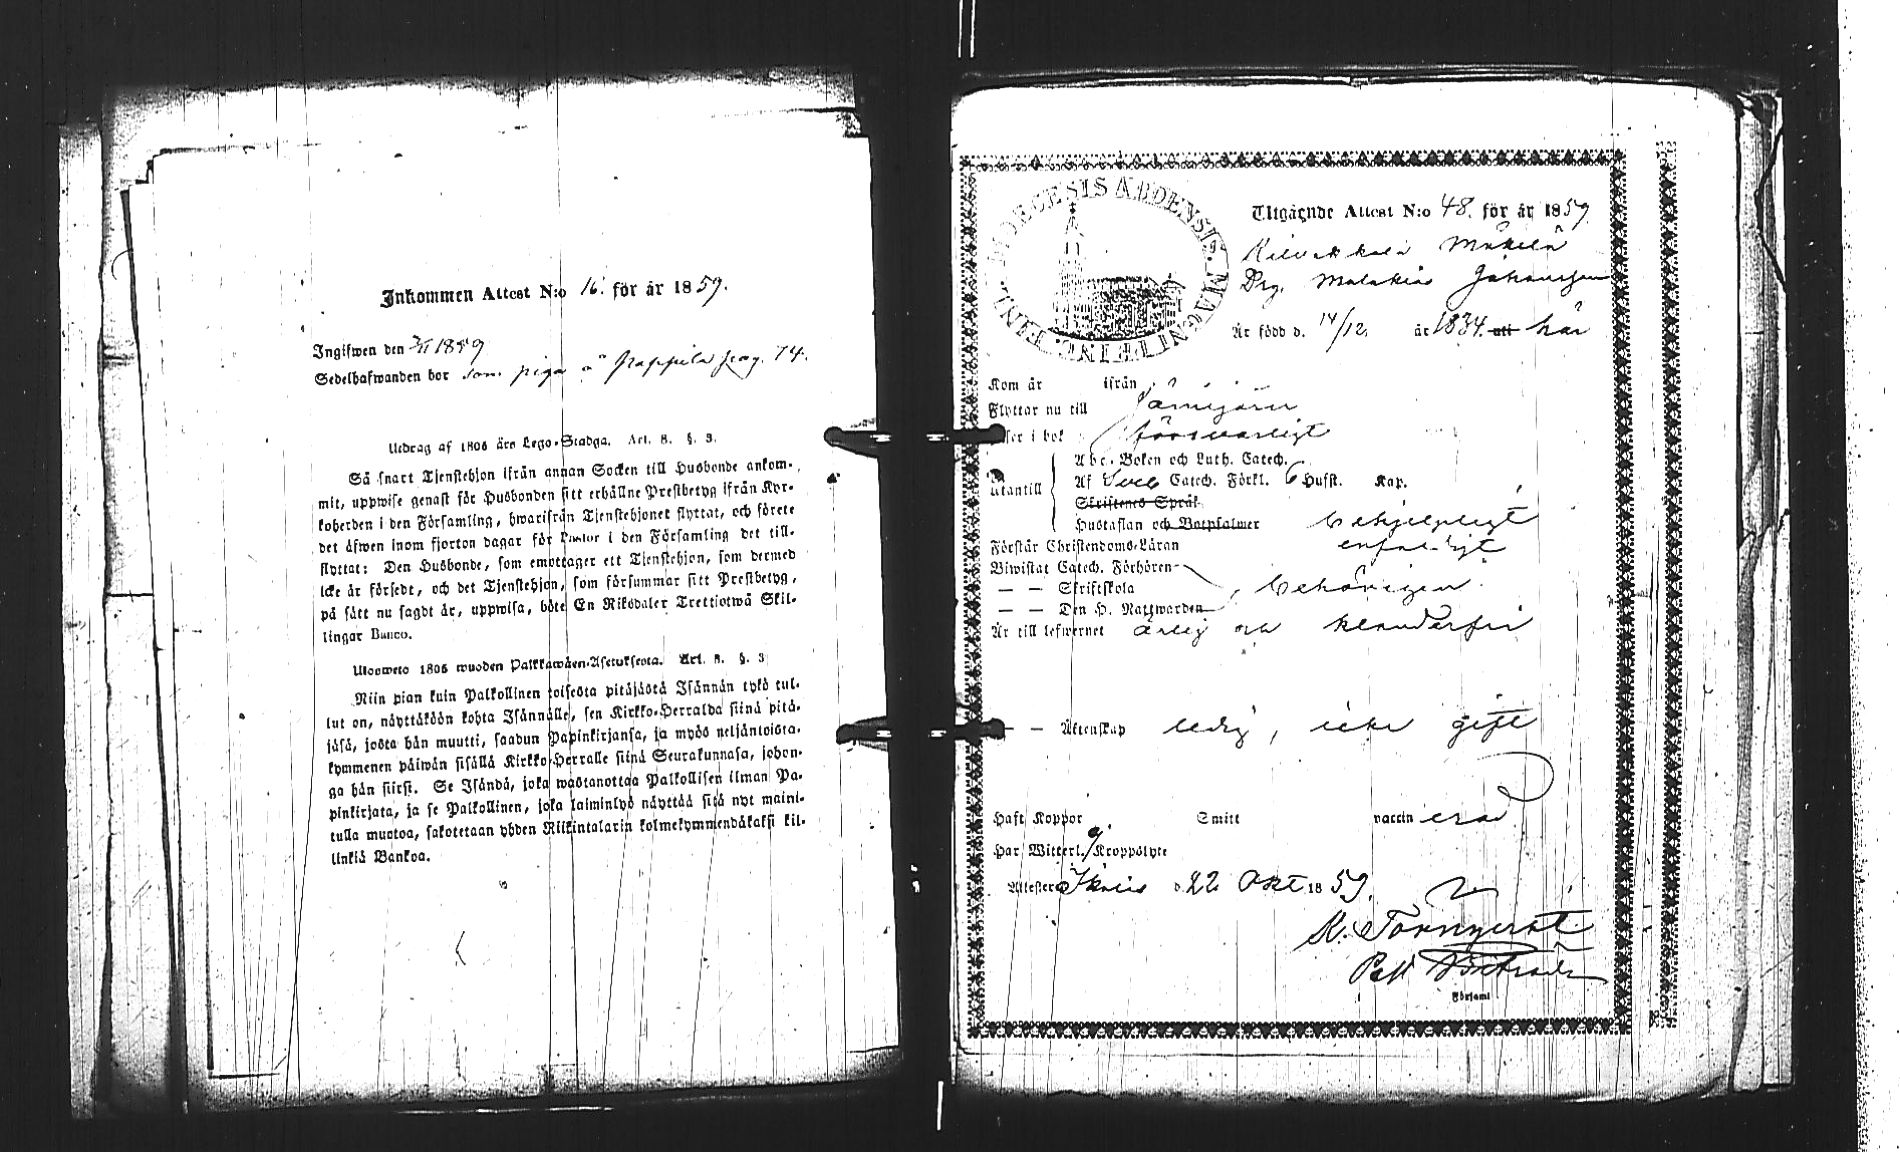 Inkommen Attest N:o 16. för år 1859.
Ingifwen den 2/11 1859
Sedelhafwanden bor som piga å Pappila pag. 74.
Utdrag af 1805 års Lego-Stadga. Art. 8. §. 3.
Så snart Tjenstehjon ifrån annan Socken till Husbonde ankom-
mit, uppwise genast för Husbonden sitt erhållne Prestbetyg ifrån Kyr-
koherden i den Församling, hwarifrån Tjenstehjonet flyttat, och förete
det äfwen inom fjorton dagar för Pastor i den Församling det till-
flyttat: Den Husbonde, som emottager ett Tjenstehjon, som dermed
icke är försedt, och det Tjenstehjon, som försummar sitt Prestbetyg,
på sätt nu sagdt är, uppwisa, böte En Riksdaler Trettiotwå Skil-
lingar Banco.
Ulosweto 1805 wuoden Palkkawäen-Asetuksesta. Art. 8. §. 3
Niin pian kuin Palkollinen toisesta pitäjästä Isännän tykö tul-
lut on, näyttäköön kohta Isännälle, sen Kirkko-Herralda siinä pitä-
jäsä, josta hän muutti, saadun Papinkirjansa, ja myös neljäntoista-
kymmenen päiwän sisällä Kirkko-Herralle siinä Seurakunnasa, johon-
ga hän siirsi. Se Isändä, joka wastanottaa Palkollisen ilman Pa-
pinkirjata, ja se Palkollinen, joka laiminlyö näyttää sitä nyt maini-
tulla muotoa, sakotetaan yhden Riikintalarin kolmekymmendäkaksi kil-
linkiä Bankoa.
DIOECESIS ABOENSIS. MAGNI. TE
Utgående Attest N:o 48. för år 1859
Kilvakkala Mäkelä
Drg. Malakias Johansson
Är född d. 14/12. år 1834. att här
Kom år ifrån
Flyttar nu till Jämijärvi
Läser i bok försvarligt
Abc-Boken och Luth. Catech.
Utantill Af Sveb Catech. Förkl. 6 Hufst. Kap.
Skriftenes Språk
Hustaflan och Botpsalmer behjelpligt
Förstår Christendoms-Läran enfaldigt
Biwistat Catech. Förhören
— — Skriftskola , behörigen
— — Den H. Nattwarden
Är till lefwernet ärlig och klanderfri
— — Äktenskap ledig, icke gift
Haft Koppor Smitt vaccin erad
Har Witterl. ej Kroppslyte
Attester. Ikalis d. 22 Okt 1859.
K. Törnqvist.
Församl